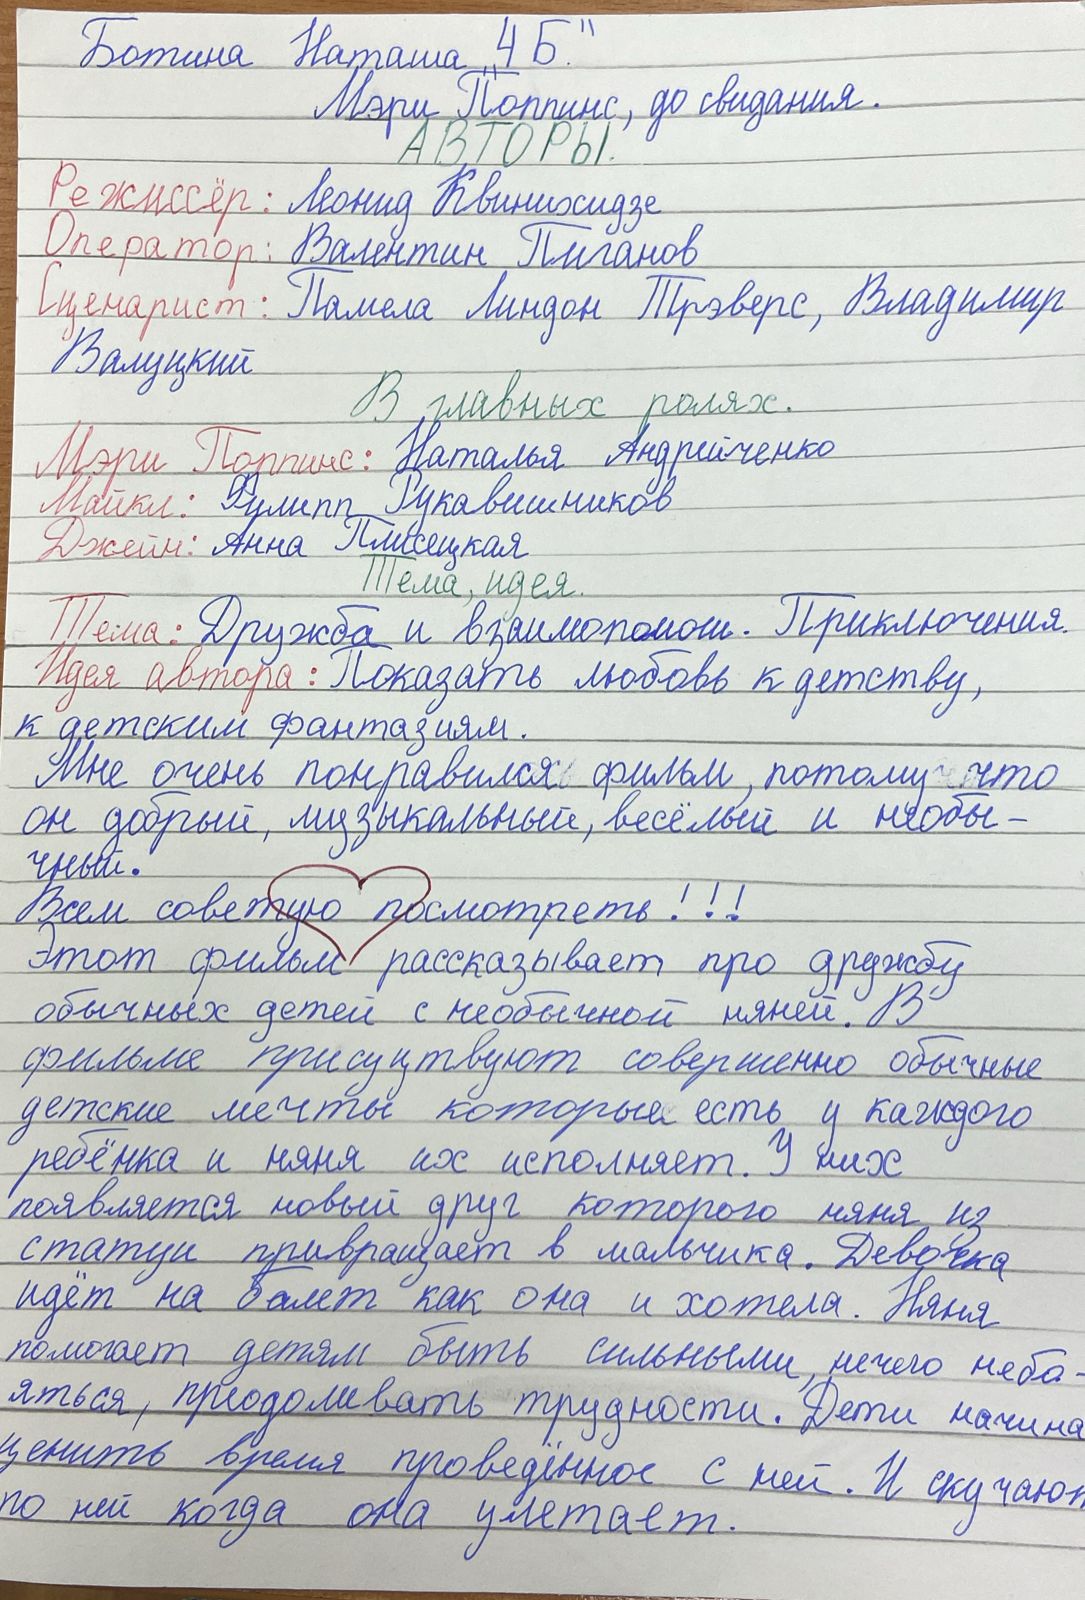 Ботина Наташа „4 Б."
Мэри Поппинс, до свидания.
АВТОРЫ.
Режиссёр: Леонид Квинихидзе
Оператор: Валентин Пиганов
Сценарист: Памела Линдон Трэверс, Владимир
Валуцкий
В главных ролях.
Мэри Поппинс: Наталья Андрейченко
Майкл: Филипп Рукавишников
Джейн: Анна Плисецкая
Тема, идея.
Тема: Дружба и взаимопомош. Приключения.
Идея автора: Показать любовь к детству,
к детским фантазиям.
Мне очень понравился фильм, потому что
он добрый, музыкальный, весёлый и необы-
чный.
Всем советую посмотреть!!!
Этот фильм рассказывает про дружбу
обычных детей с необычной няней. В
фильме присуцтвуют совершенно обычные
детские мечты которые есть у каждого
ребёнка и няня их исполняет. У них
появляется новый друг которого няня из
статуи привращает в мальчика. Девочка
идёт на балет как она и хотела. Няня
помогает детям быть сильными, нечего неба-
яться, приодоливать трудности. Дети начина
ценить время проведённое с ней. И скучают
по ней когда она улетает.